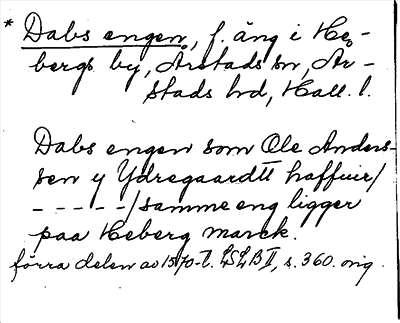 * Dabs engen, f. äng i He-
bergs by, Årstads sn, År-
stads hd, Hall. l.
Dabs engen som Ole Anders-
sen y Ydregaardtt haffuir/
- - - - -/samme eng ligger
paa Heberg marck.
förra delen av 1570-t. LSLB II, s. 360. orig.